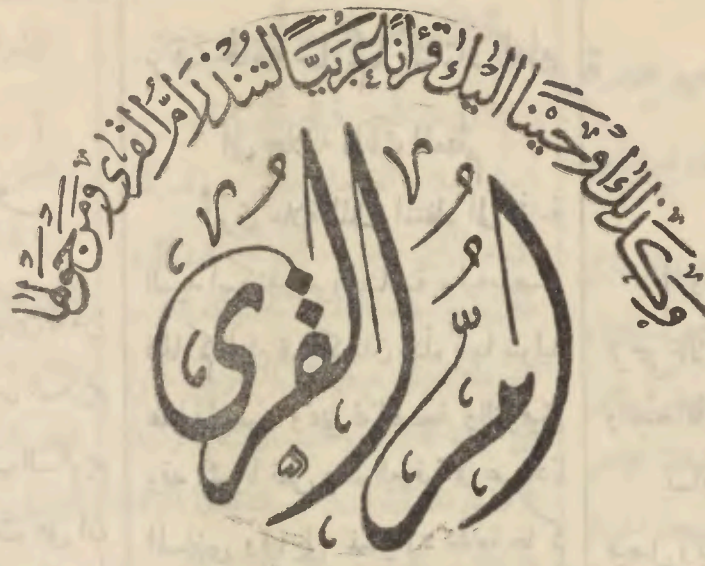 وَكَذَٰلِكَ أَوْحَيْنَا إِلَيْكَ قُرْآنًا عَرَبِيًّا لِتُنْذِرَ أُمَّ الْقُرَىٰ وَمَنْ حَوْلَهَا
أُمُّ الْقُرَى